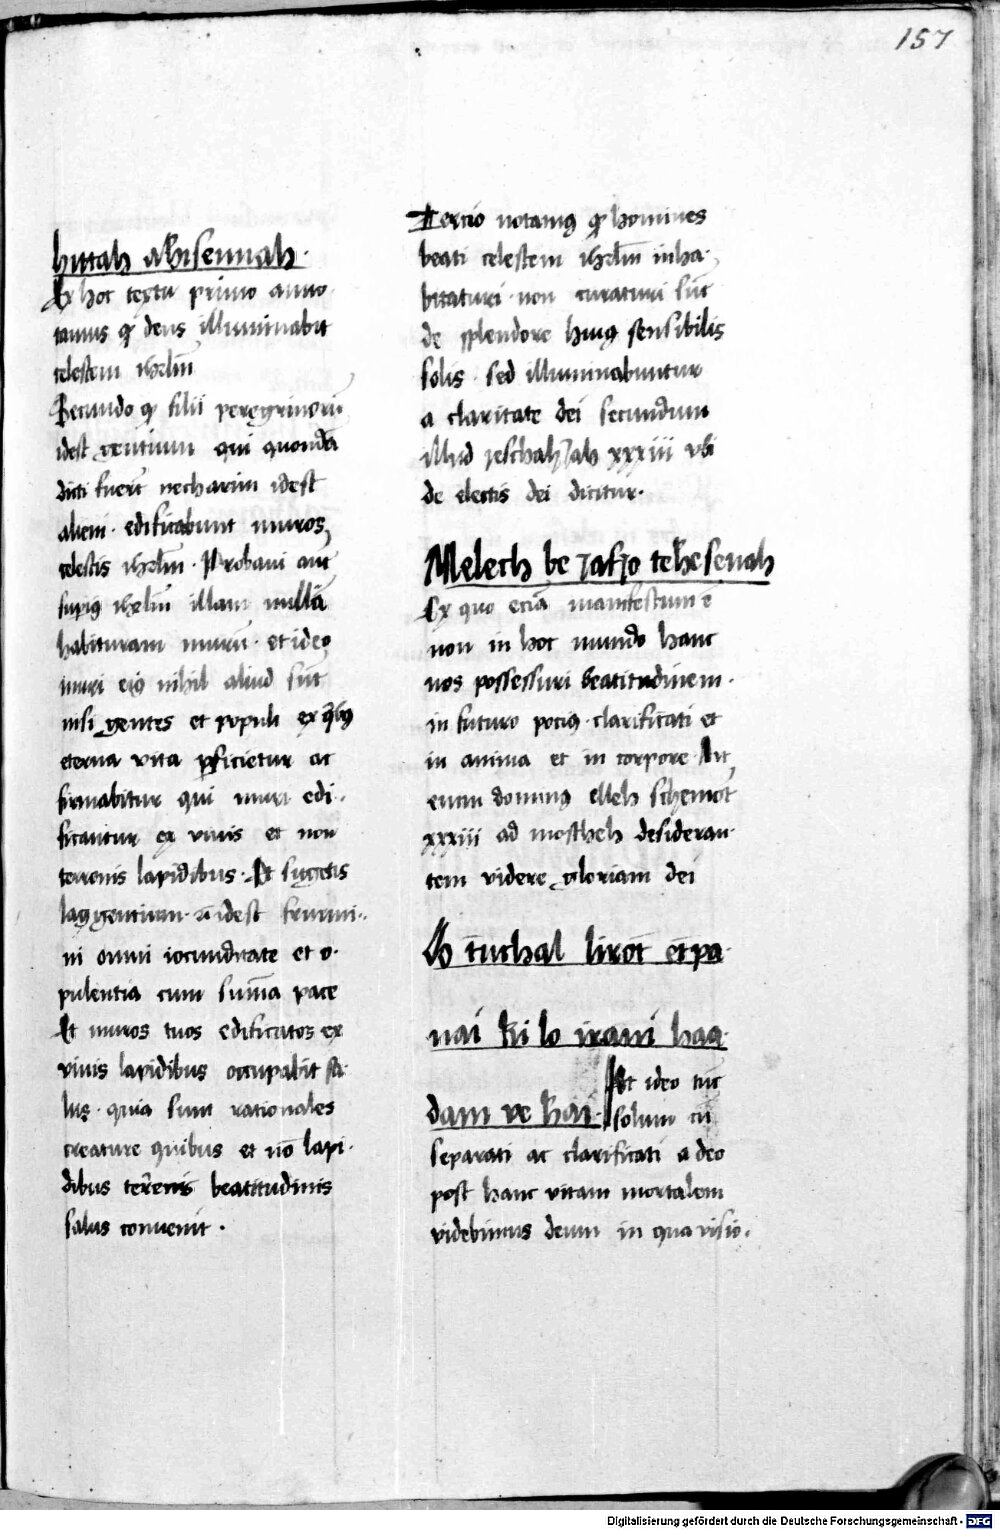 157
hittah akisennah·
Ex hoc textu primo anno·
tamus ꝙ deus illuminabit
celestem ihrlm̄
Secundo ꝙ filii peregrinorū
idest gentium qui quondā
dicti fuer̄t necharim idest
alieni· edificabunt muros
celestis ihrlm̄· Probaui aut̄
supiꝰ ihrlm̄ illam nullā
habituram murū· et ideo
muri eiꝰ nihil aliud sūt
nisi gentes et populi ex q̄ibꝰ
eterna vita ꝑficietur ac
firmabitur qui muri edi·
ficantur ex viuis et non
terrenis lapidibus· Et sugetis
lac gentium· idest frumi··
ni omni iocunditate et o·
pulentia cum sum̄a pace
Et muros tuos edificatos ex
viuis lapidibus occupabit sa·
lus· quia sunt rationales
creature quibus et nō lapi·
dibus terrenis beatitudinis
salus conuenit·
Tercio notamꝰ ꝙ homines
beati celestem ihrlm̄ inha·
bitaturi· non curaturi sūt
de splendore huiꝰ sensibilis
solis· sed illuminabuntur
a claritate dei secundum
illud jeschahJah xxxiii vbi
de electis dei dicitur·
Melech be jafjo tehesenah
Ex quo eciā manifestum ē
non in hoc mundo hanc
nos possessuri beatitudinem·
in futuro pociꝰ clarificati et
in anima et in corpore Ait
enim dominꝰ elleh schemot
xxxiii ad moscheh desideran·
tem videre gloriam dei
Lo tuchal lirot et pa·
nai ki lo irani haa·
dam ve hai· Et ideo tūc
solum cū
separati ac clarificati a deo
post hanc vitam mortalem
videbimus deum in qua visio·
Digitalisierung gefördert durch die Deutsche Forschungsgemeinschaft - DFG